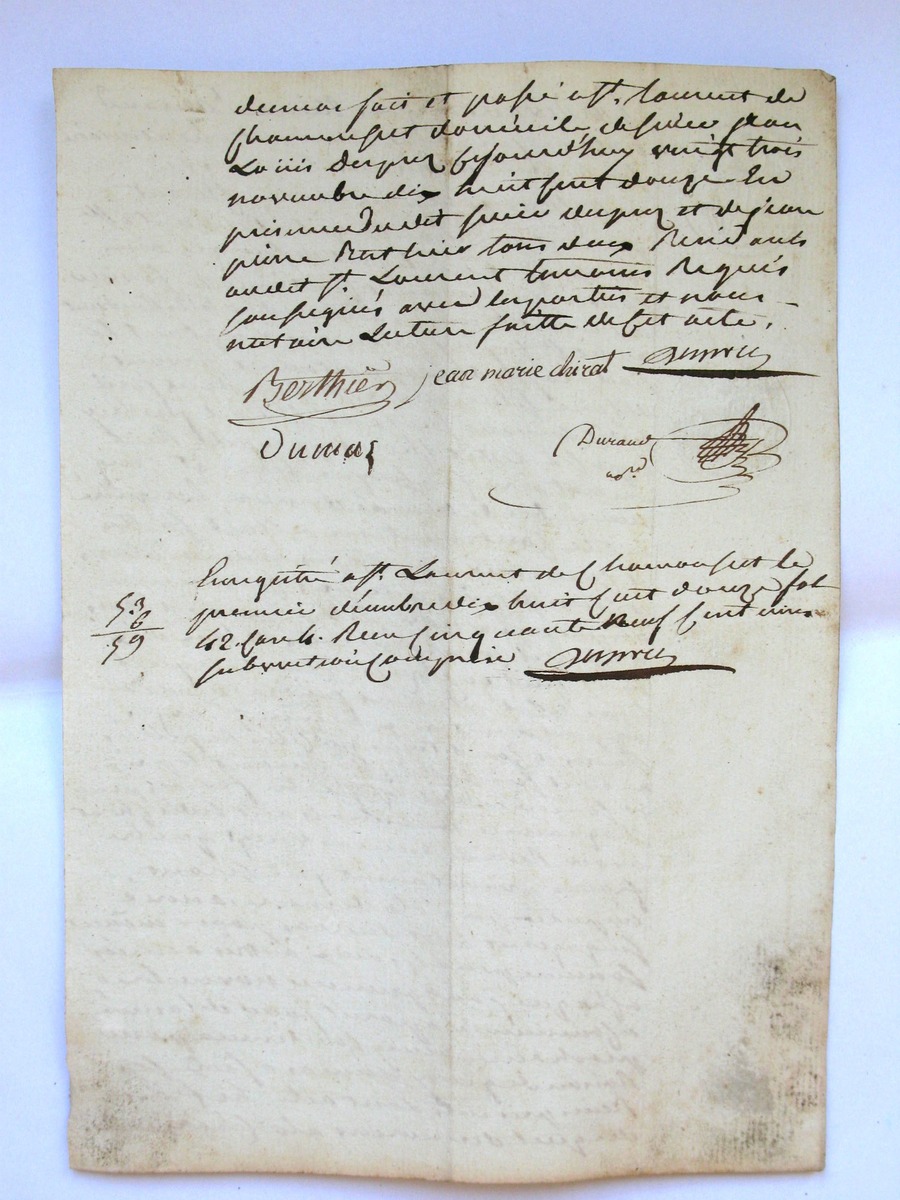 dumas fait et passé a St. Laurent de
Chamousset domicile de sieur jean
Louis Duprez ce jourdhuy vingt trois
novembre dix huit cent douze En
présence dudit sieur duprez et de jean
pierre Berthier tous deux Résidants
audit St. Laurent temoins Requis
soussignés avec les parties et nous
notaire Lecture faitte de cet acte.
Berthier jean marie chirat
Dumas
Durand
nore
Enregistré a St. Laurent de Chamousset le
premier décembre dix huit cent douze fol
42. Reçu cinquante neuf cent
subvention comprise
53
6
59